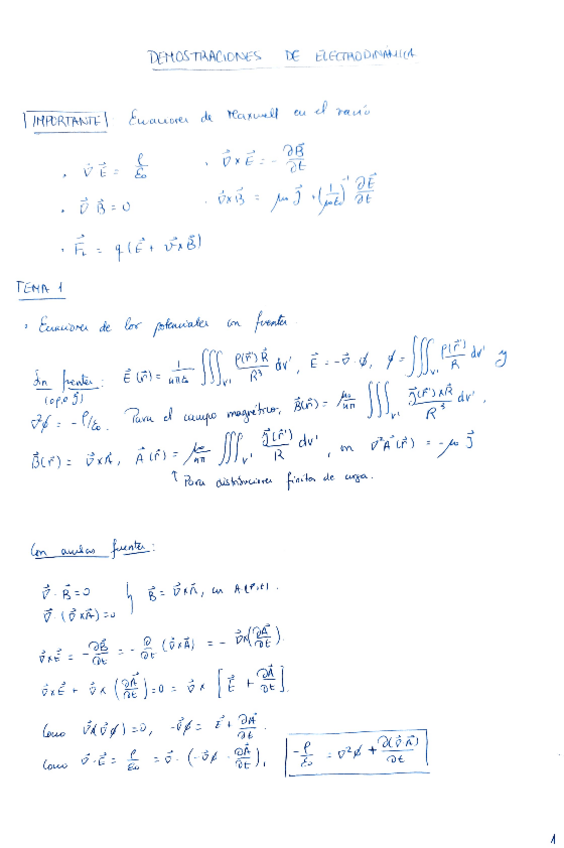 DEMOSTRACIONES DE ELECTRODINÁMICA
IMPORTANTE Ecuaciones de Maxwell en el vacío
· ∇⃗ E⃗ = ρ/ε₀ · ∇⃗ x E⃗ = - ∂B⃗/∂t
· ∇⃗ B⃗ = 0 · ∇⃗xB⃗ = μ₀ J⃗ + (1/μ₀ε₀)⁻¹ ∂E⃗/∂t
· F⃗L = q (E⃗ + v⃗xB⃗)
TEMA 1
· Ecuaciones de los potenciales con fuentes.
Sin fuentes: E⃗(r⃗) = ∭V' ρ(r⃗')R⃗/R³ dv', E⃗ = -∇⃗·ϕ, ϕ = ∭V' ρ(r⃗')/R dv' y
∇²ϕ = -ρ/ε₀. Para el campo magnético, B⃗(r⃗) = μ₀/4π ∭V' J⃗(r⃗')xR⃗/R³ dv',
B⃗(r⃗) = ∇⃗xA⃗, A⃗(r⃗) = μ₀/4π ∭V' J⃗(r⃗')/R dv', con ∇²A⃗(r⃗) = -μ₀ J⃗
↑ Para distribuciones finitas de carga.
Con ambas fuentes:
∇⃗·B⃗=0 } B⃗ = ∇⃗xA⃗, con A(r⃗,t).
∇⃗·(∇⃗xA⃗)=0
∇⃗xE⃗ = -∂B⃗/∂t = -∂/∂t (∇⃗xA⃗) = -∇⃗x(∂A⃗/∂t).
∇⃗xE⃗ + ∇⃗x(∂A⃗/∂t)=0 = ∇⃗x [E⃗ + ∂A⃗/∂t].
Como ∇⃗x(∇⃗ϕ)=0, -∇⃗ϕ = E⃗ + ∂A⃗/∂t.
Como ∇⃗·E⃗ = ρ/ε₀ = ∇⃗·(-∇⃗ϕ - ∂A⃗/∂t), -ρ/ε₀ = ∇²ϕ + ∂(∇⃗A⃗)/∂t
1